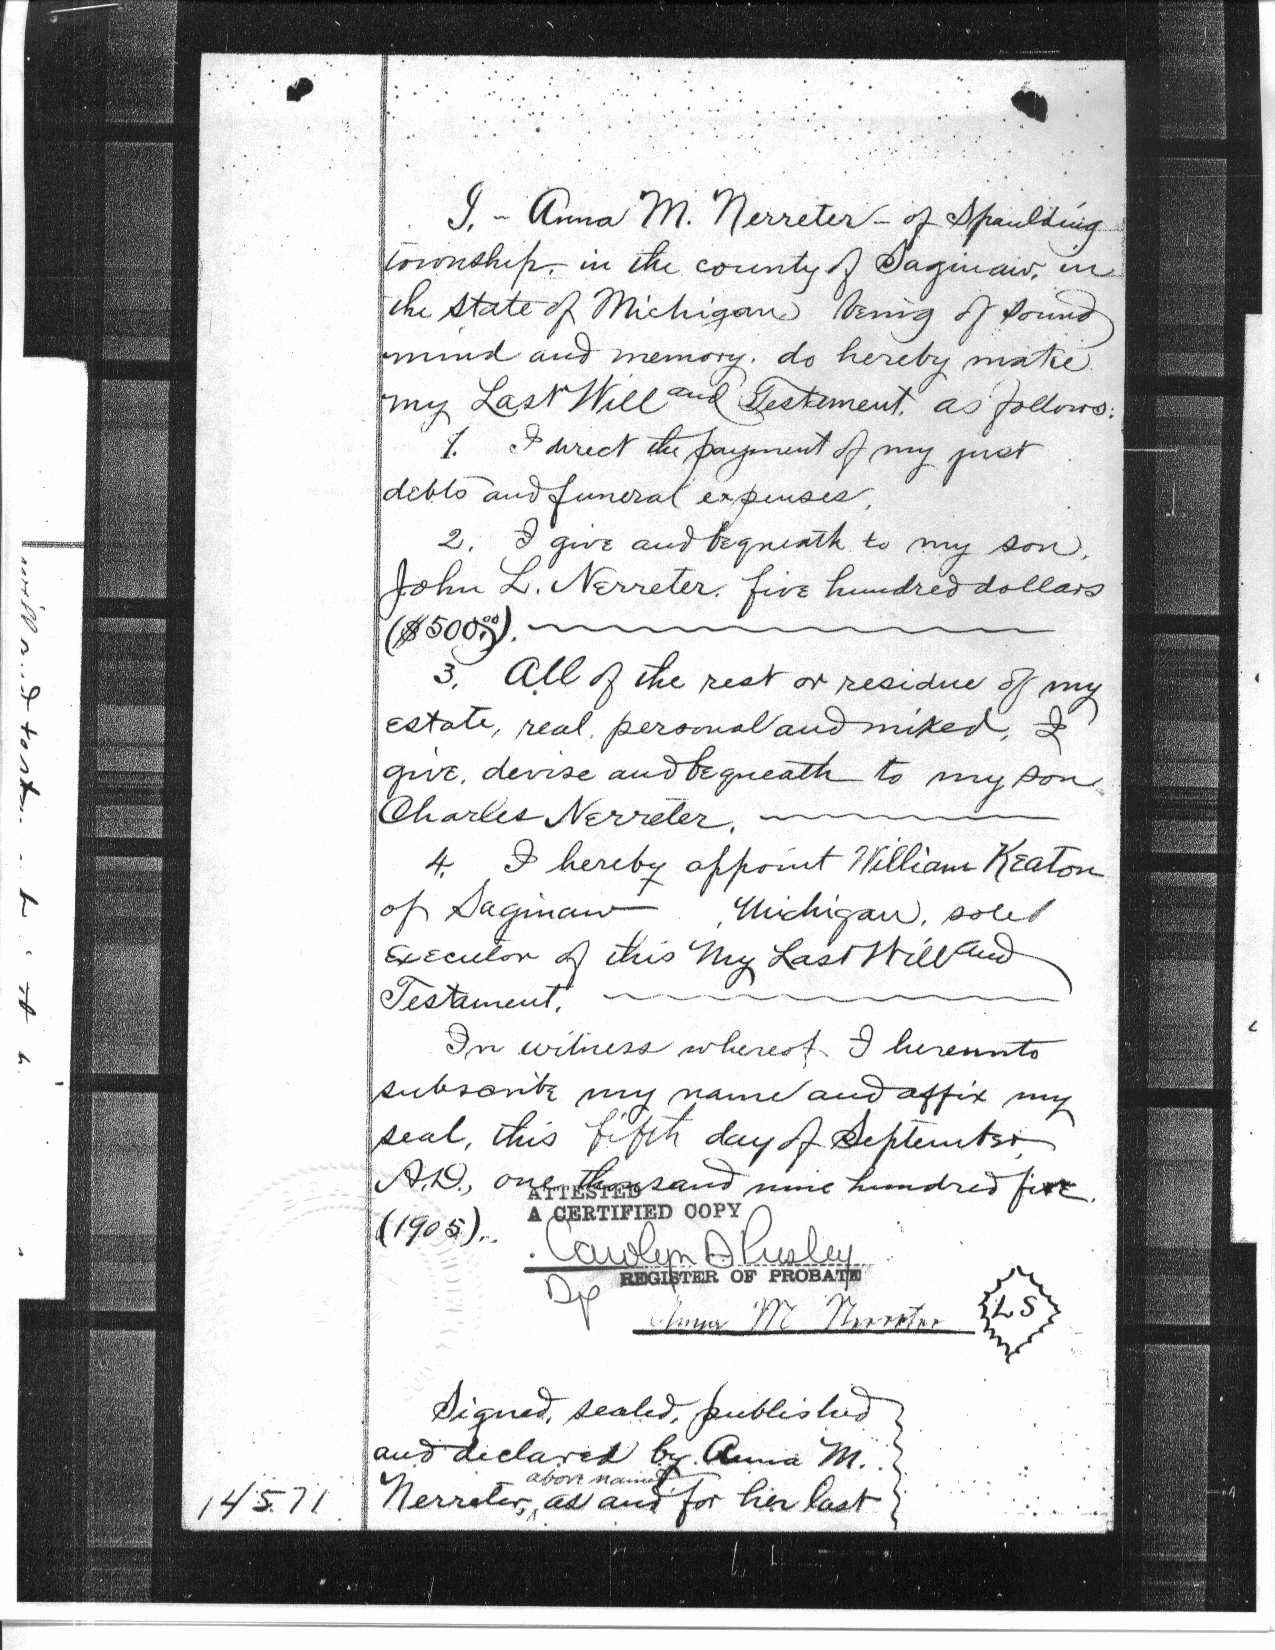 I, - Anna M. Nerreter - of Spaulding
township, in the county of Saginaw, in
the state of Michigan being of sound
mind and memory, do hereby make
my Last Will and Testament, as follows:
1. I direct the payment of my just
debts and funeral expenses,
2. I give and bequeath to my son,
John L. Nerreter, five hundred dollars
($500.00).
3. All of the rest or residue of my
estate, real, personal and mixed, I
give, devise and bequeath to my son
Charles Nerreter.
4. I hereby appoint William Keaton
of Saginaw, Michigan, sole
executor of this My Last Will and
Testament.
In witness whereof I hereunto
subscribe my name and affix my
seal, this fifth day of September,
A.D., one thousand nine hundred five.
(1905).
ATTESTED
A CERTIFIED COPY
Carolyn A Pusley
REGISTER OF PROBATE
Dp
Anna M Nerreter
L S
Signed, sealed, published
and declared by Anna M.
above named
Nerreter, as and for her last
14571